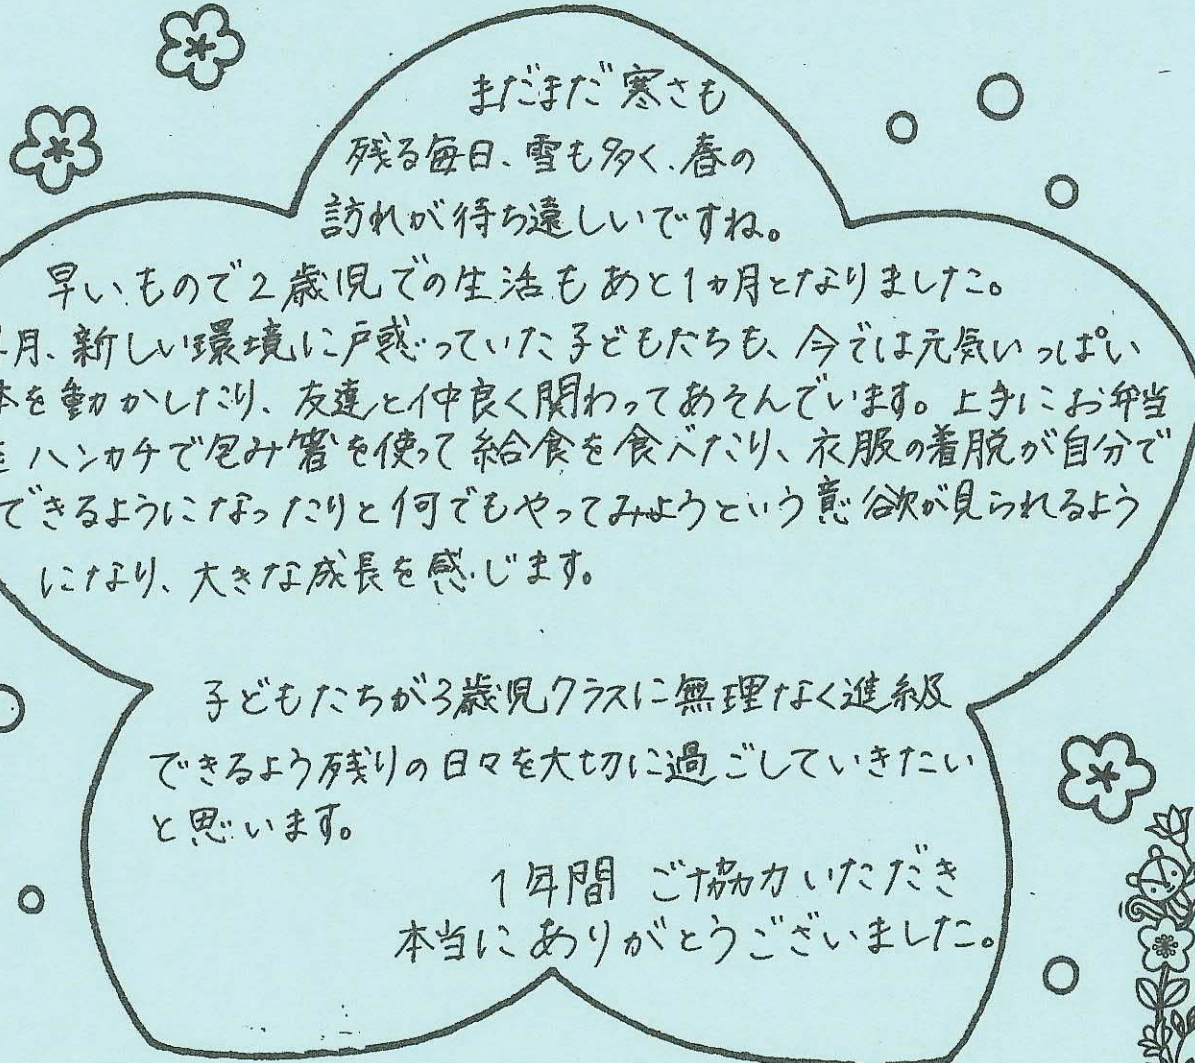 まだまだ寒さも
残る毎日、雪も多く、春の
訪れが待ち遠しいですね。
早いもので2歳児での生活もあと1ヵ月となりました。
月、新しい環境に戸惑っていた子どもたちも、今では元気いっぱい
を動かしたり、友達と仲良く関わってあそんでいます。上手にお弁当
ハンカチで包み箸を使って給食を食べたり、衣服の着脱が自分で
できるようになったりと何でもやってみようという意欲が見られるよう
になり、大きな成長を感じます。
子どもたちが3歳児クラスに無理なく進級
できるよう残りの日々を大切に過ごしていきたい
と思います。
1年間 ご協力いただき
本当にありがとうございました。